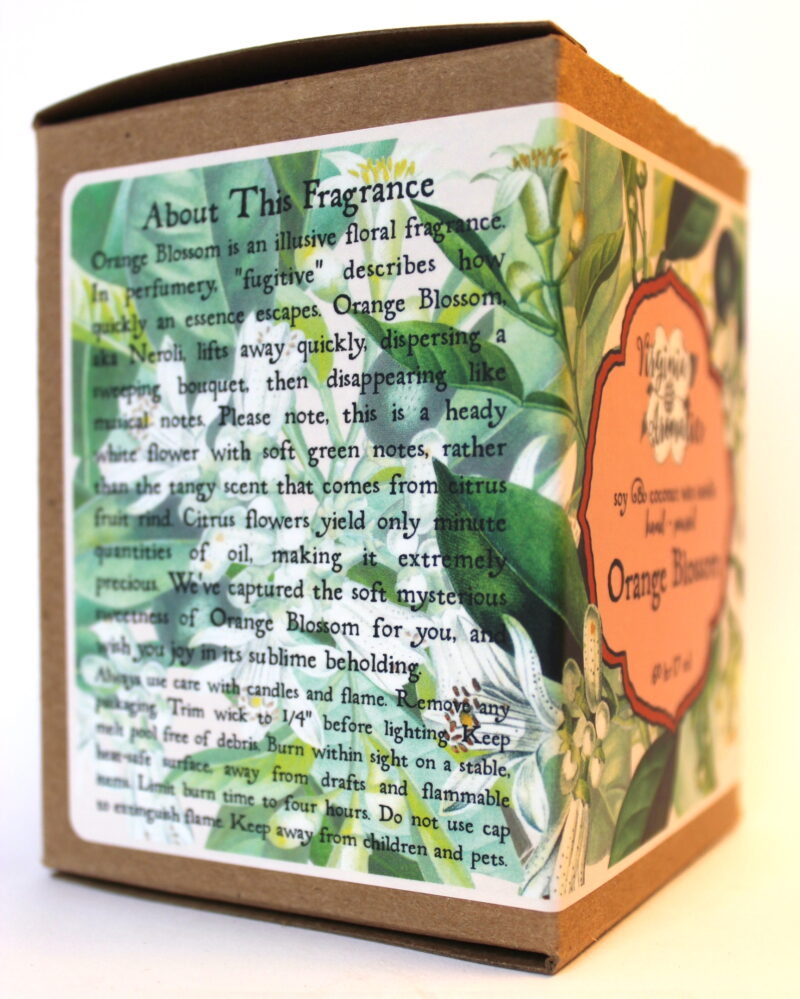 About This Fragrance
Orange Blossom is an illusive floral fragrance.
In perfumery, "fugitive" describes how
quickly an essence escapes. Orange Blossom,
aka Neroli, lifts away quickly, dispersing a
sweeping bouquet, then disappearing like
musical notes. Please note, this is a heady
white flower with soft green notes, rather
than the tangy scent that comes from citrus
fruit rind. Citrus flowers yield only minute
quantities of oil, making it extremely
precious. We've captured the soft mysterious
sweetness of Orange Blossom for you, and
wish you joy in its sublime beholding.
Always use care with candles and flame. Remove any
packaging. Trim wick to 1/4" before lighting. Keep
melt pool free of debris. Burn within sight on a stable,
heat-safe surface, away from drafts and flammable
items. Limit burn time to four hours. Do not use cap
to extinguish flame. Keep away from children and pets.
Virginia
soy & coconut wax
hand-poured
Orange Blossom